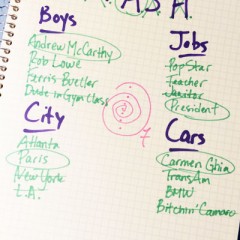 M.A.S.H.
Boys
Andrew McCarthy
Rob Lowe
Ferris Bueller
Dude in Gym Class
City
Atlanta
Paris
New York
L.A.
Jobs
Pop Star
Teacher
Janitor
President
Cars
Carmen Ghia
Trans Am
BMW
Bitchin' Camaro